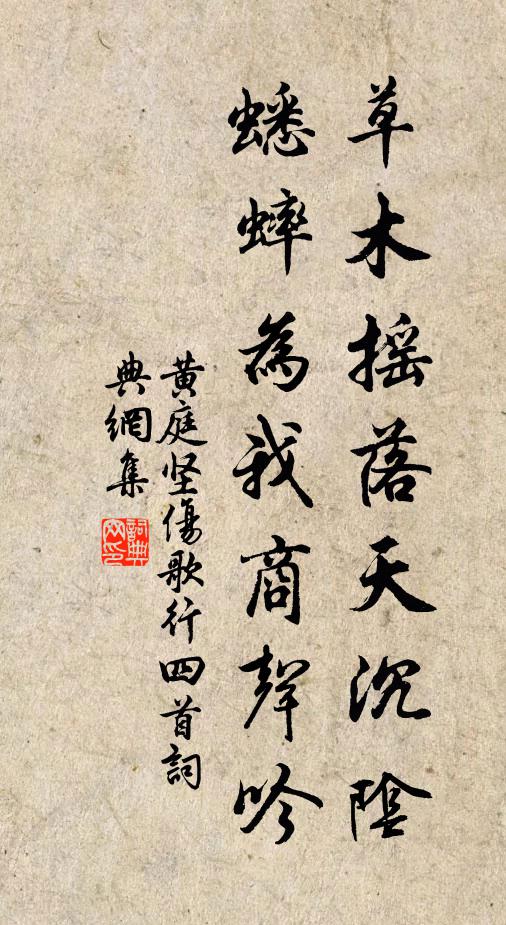 草木摇落天沉陰
蟋蟀為我商聲吟
黃庭坚傷歌行四首詞
典網集
詞典网印